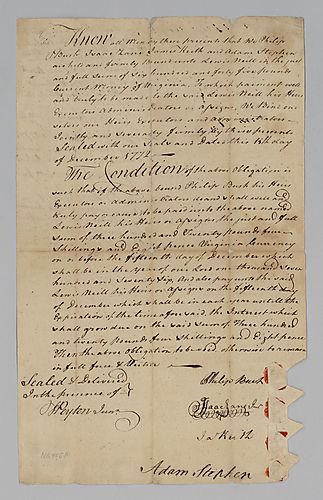 Know all men by these presents that We Philip
Bush Isaac Zane James Keith and Adam Stephen
are held and firmly Bound unto Lewis Neill in the just
and full Sum of Six hundred and forty five pounds
Current Money of Virginia, to which payment well
and truly to be made to the said Lewis Neill his Heirs
Executors Administrators or Assigns, We Bind our
selves our Heirs Executors and Administrators
Jointly and Severally firmly by these presents
Sealed with our Seals and Dated this 15th day
of December 1772
The Condition of the above Obligation is
such that if the above bound Philip Bush his Heirs
Executors or Administrators do and shall well and
truly pay or cause to be paid unto the above named
Lewis Neill his Heirs or Assigns, the just and full
sum of three hundred and Twenty Pounds four
Shillings and Eight pence Virginia Currency
on or before the fifteenth day of December which
shall be in the Year of our Lord one thousand Seven
hundred and Seventy Six, And also pay unto the said
Lewis Neill his Heirs or Assigns on the fifteenth day
of December which shall be in each year untill the
Expiration of the time afore said, the Interest which
shall grow due on the said Sum of Three hundred
and twenty Pounds four Shillings and Eight pence
Then the above Obligation to be void otherwise to remain
in full force & Virtue
Sealed & Delivered
In the presence of
J Peyton Junr
Philip Bush
Isaac Zane Jr
Ja Keith
Adam Stephen